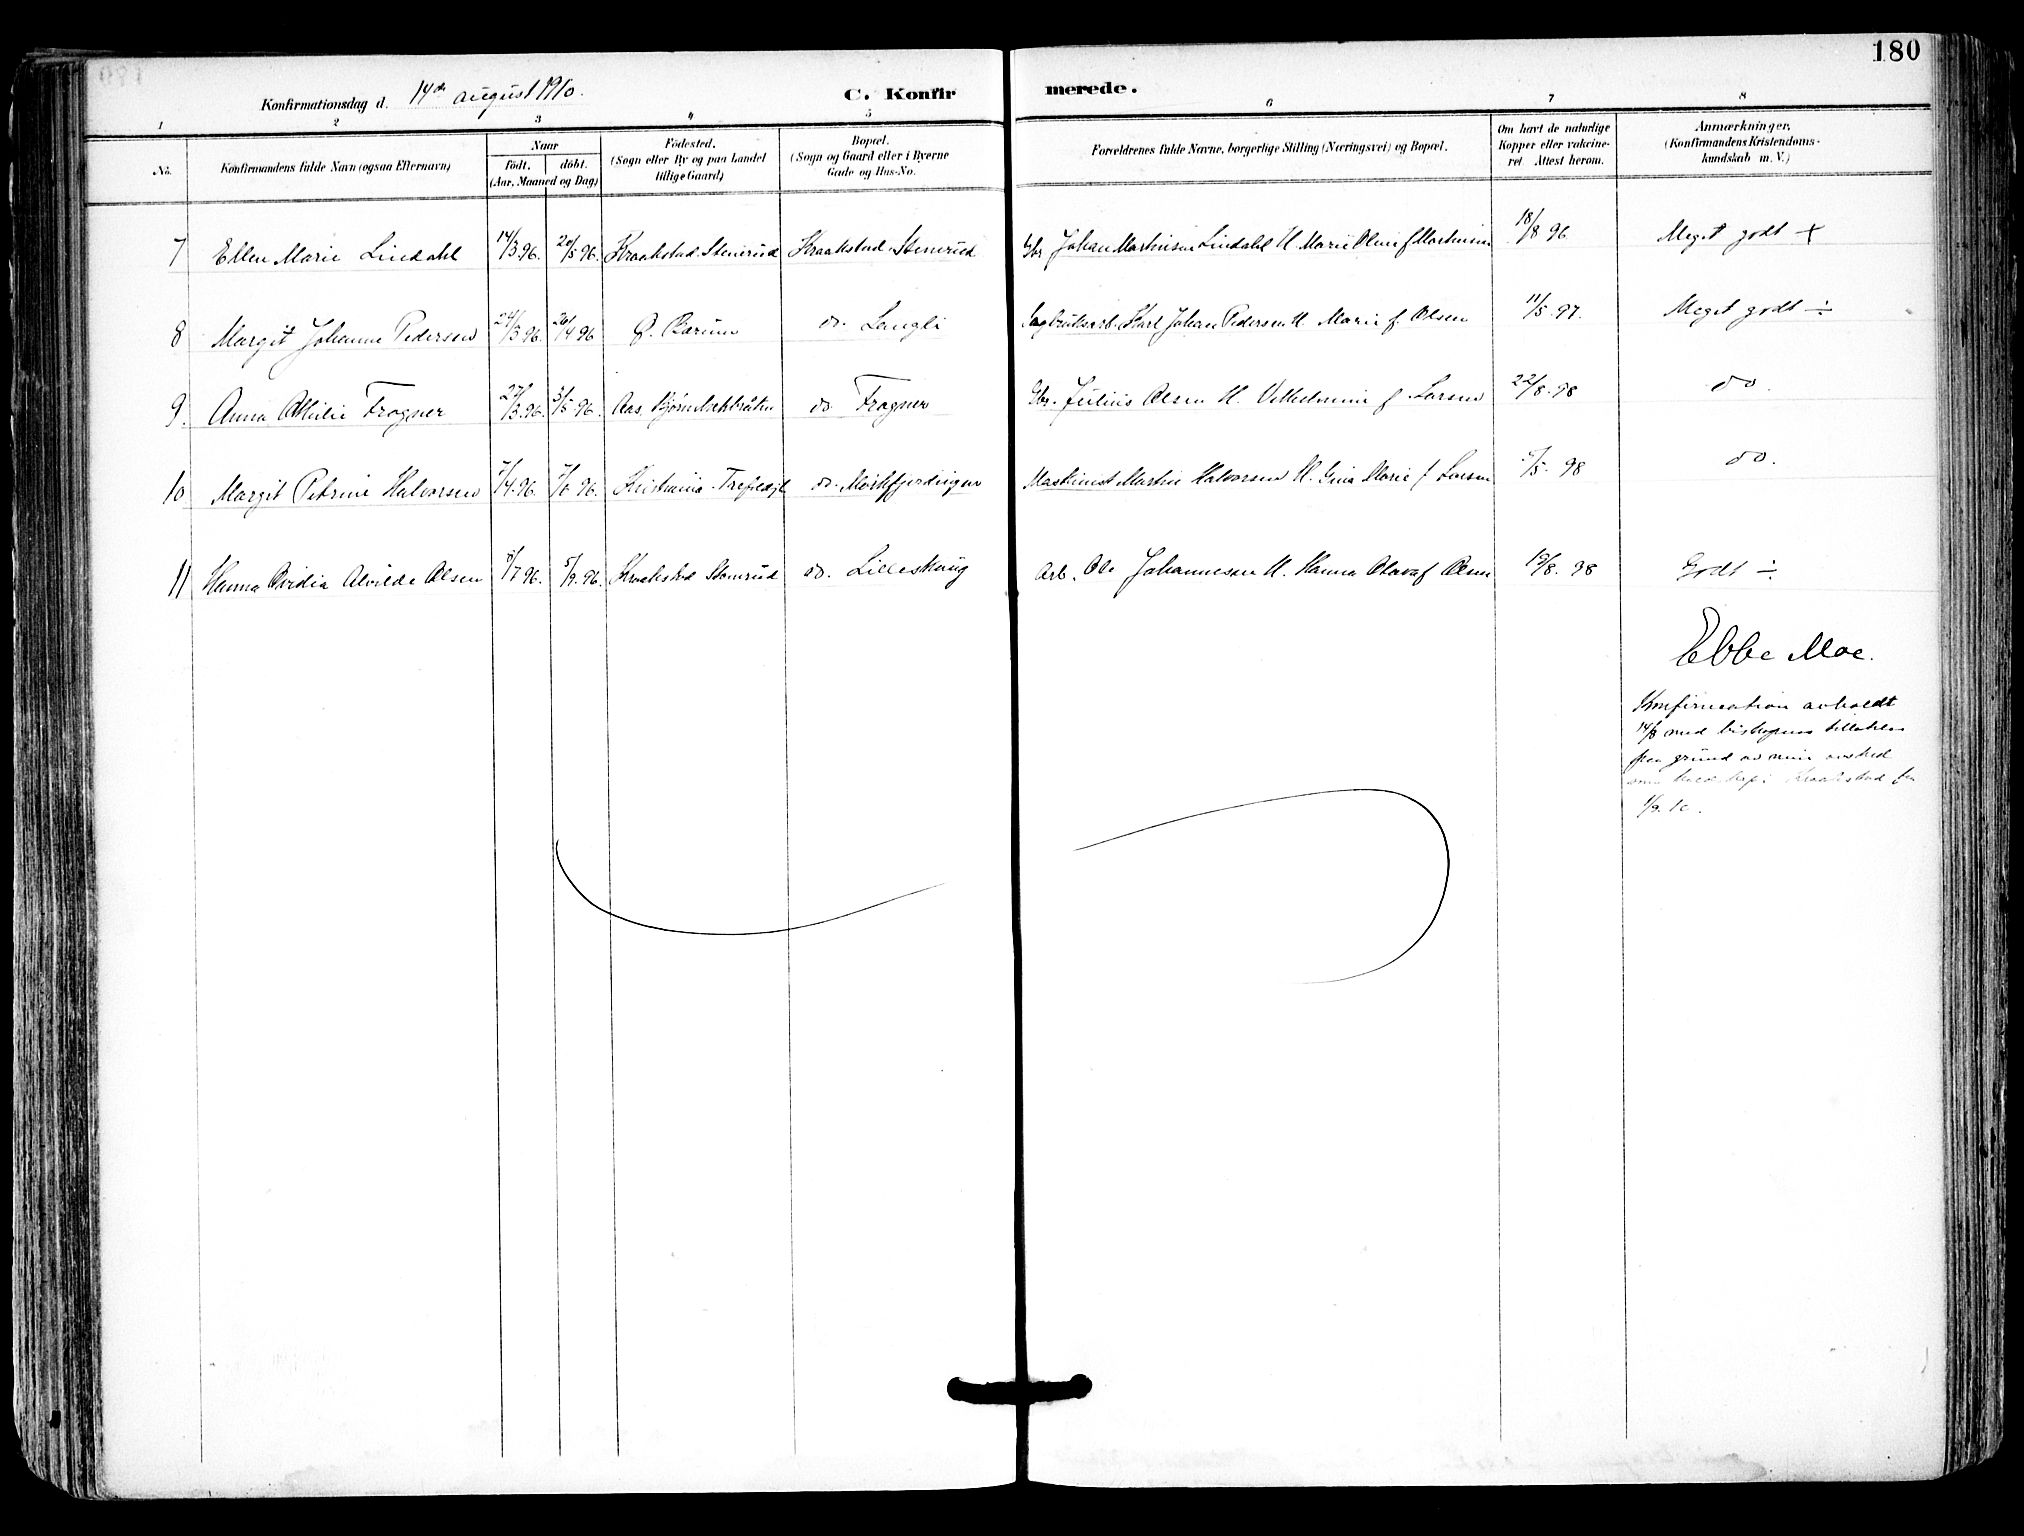 180
Konfirmationsdag d. 14de august 1910. C. Konfir merede.
1 2 3 4 5 6 7 8
No. Konfirmandens fulde Navn (ogsaa Efternavn) Naar födt. döbt. (Aar, Maaned og Dag) Födested. (Sogn eller By og paa Landet tillige Gaard) Bopæl. (Sogn og Gaard eller i Byerne Gade og Hus-No. Forældrenes fulde Navne, borgerlige Stilling (Næringsvei) og Bopæl. Om havt de naturlige Kopper eller vakcineret. Attest herom. Anmærkninger. (Konfirmandens Kristendomskundskab m. V.)
7 Ellen Marie Lindahl 14/3 96. 20/5 96. Kraakstad. Stenerud Kraakstad Stenerud Gbr Johan Martinsen Lindahl H. Marie Oline f Martinsen 18/8 96 Meget godt +
8 Margit Johanne Pedersen 24/3 96. 26/4 96 Ø. Bærum do. Langli Sagbruksarb. Karl Johan Pedersen H. Marie f Olsen 11/5 97. Meget godt ÷
9. Anna Othilie Frogner 27/3 96. 3/5 96. Aas, do. Frogner Gbr. Julius Olsen H. Vilhelmine f. Larsen 22/8. 98 do.
10 Margit Petrine Halvorsen 7/4 96. 7/6 96. Kristiania do. Mørkfjerdingen Maskinist Martin Halvorsen H. Gina Marie f Larsen /5 98 do.
11 Hanna Ovidia Alvilde Olsen 8/7 96. 5/9. 96. Kraakstad Stenerud do. Lilleskaug Arb. Ole Johannesen H. Hanna Olava f Olsen 19/8. 98 Godt ÷.
Ebbe Moe.
Konfirmation avholdt
14/8 med biskopens tilladelse
paa grund av min avsked
Kraakstad fra
1/9. 10.